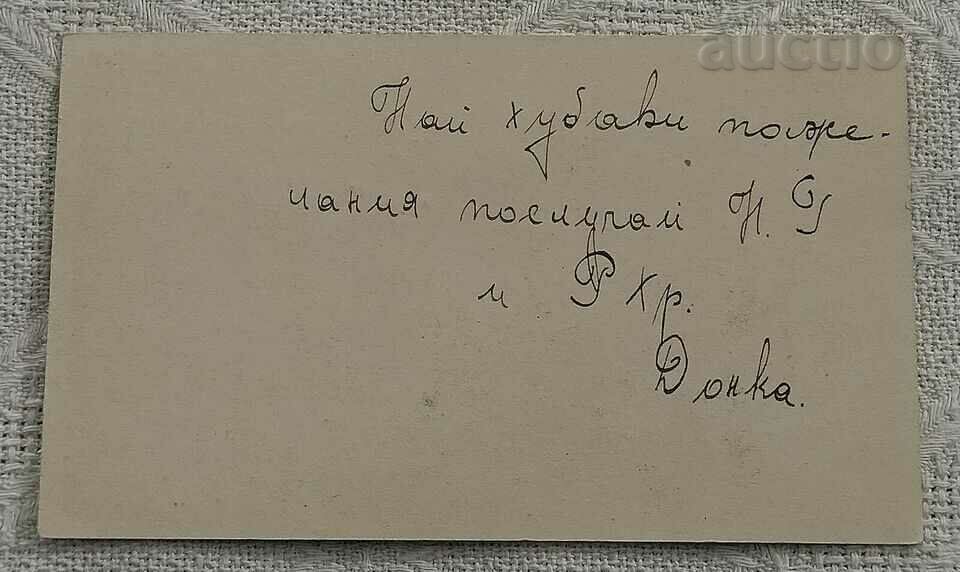 auctio
Най хубави поже-
лания послучай Н. Г
и Р Хр.
Донка.